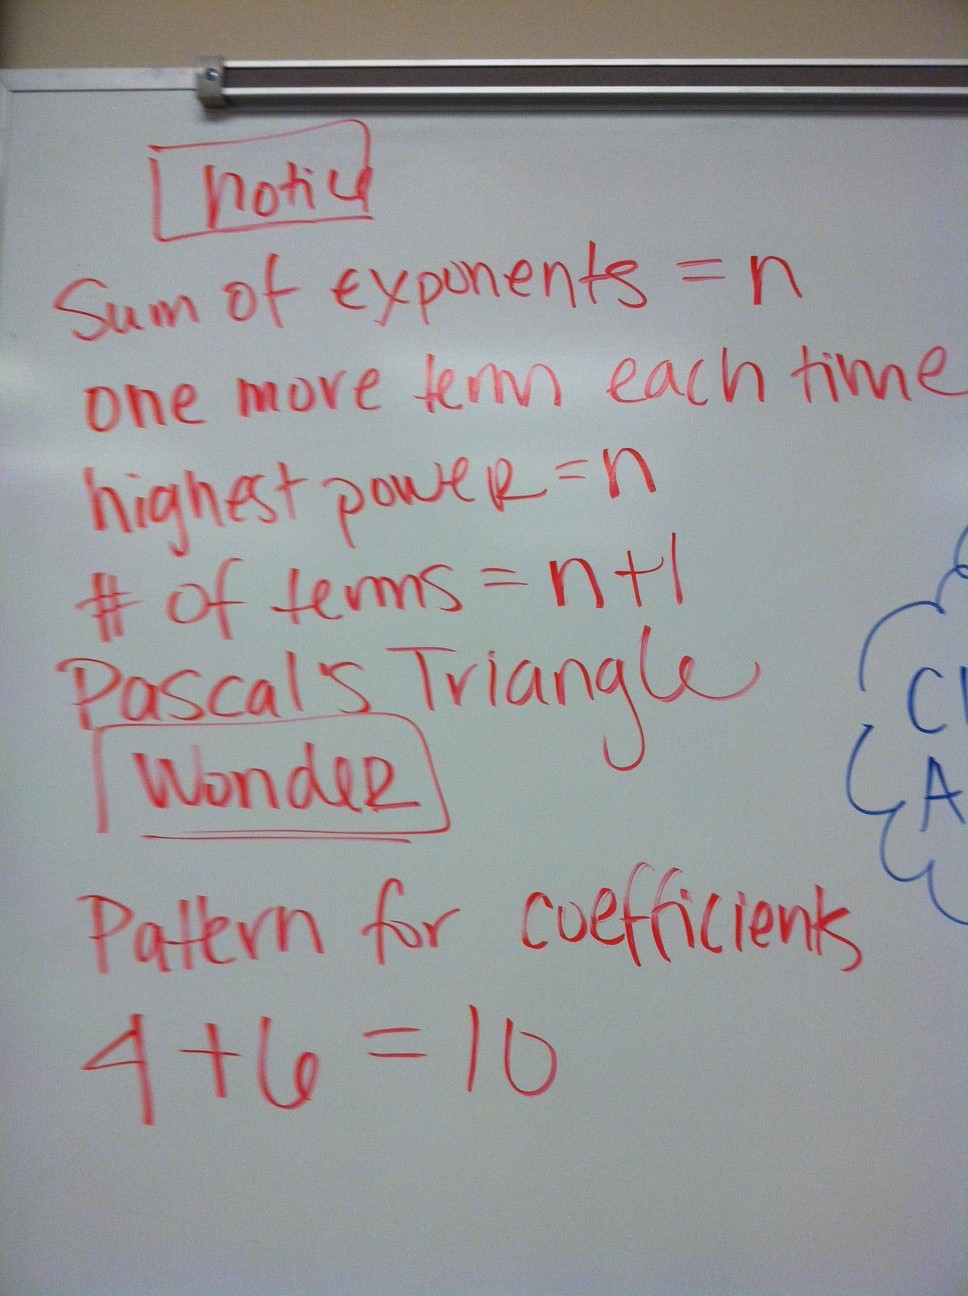 notice
Sum of exponents = n
one more term each time
highest power = n
# of terms = n+1
Pascal's Triangle
Wonder
Pattern for coefficients
4+6 = 10
C
A